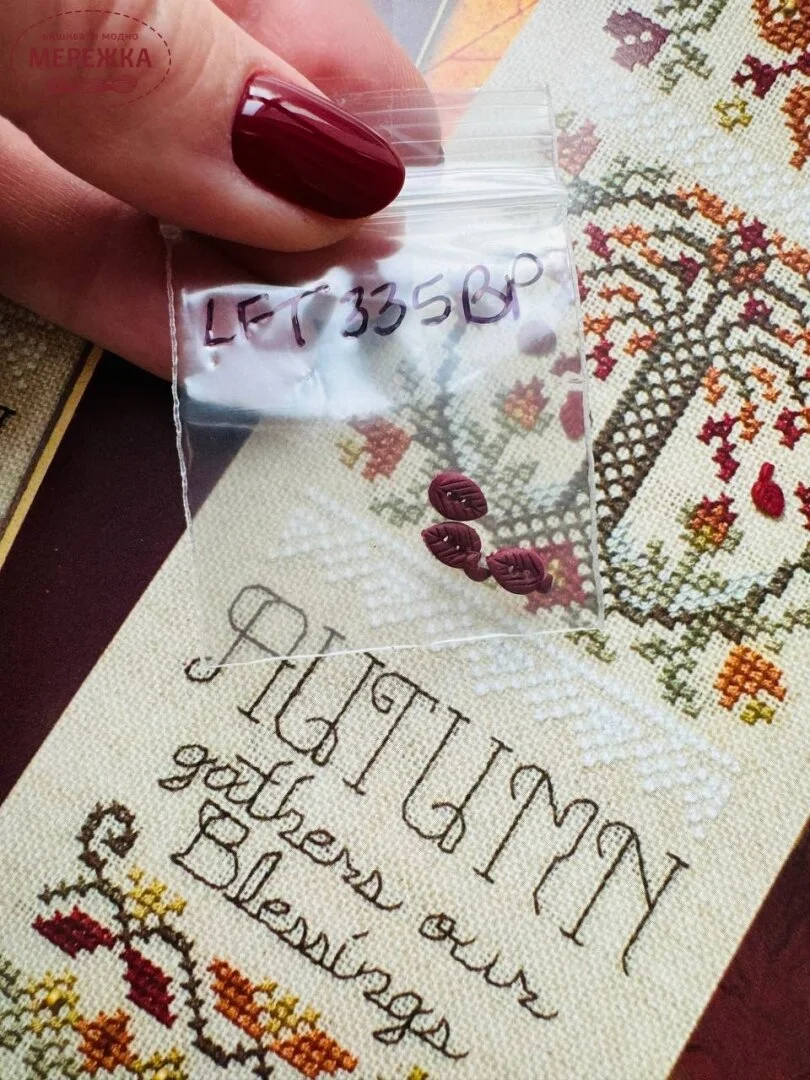 вишивати модно
МЕРЕЖКА
LFT 335BP
AUTUMN
gathers our
Blessings